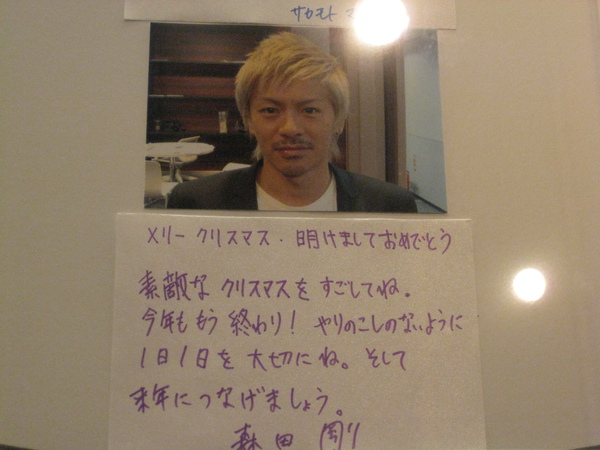 サカモト マ
メリークリスマス・明けましておめでとう
素敵な クリスマスを すごしてね。
今年も もう 終わり! やりのこしのないように
1日1日を 大切にね。そして
来年につなげましょう。
森田 剛